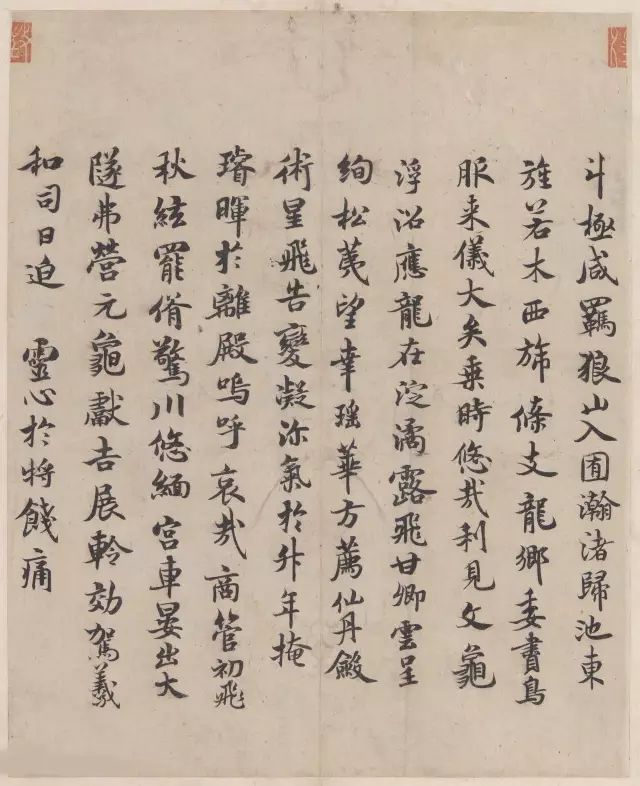 斗極咸羈狼山入囿瀚渚歸池東
旌若木西旆條支龍鄉委書鳥
服来儀大矣乘時悠哉利見文龜
浮沼應龍在淀濡露飛甘卿雲呈
絢松荑望幸瑶華方薦仙丹斂
術星飛告變凝沴氣於升年掩
璿暉於離殿嗚呼哀哉商管初飛
秋紘罷脩驚川悠緬宮車晏出大
隧弗營元龜獻吉展軨効駕羲
和司日迫 靈心於將餞痛